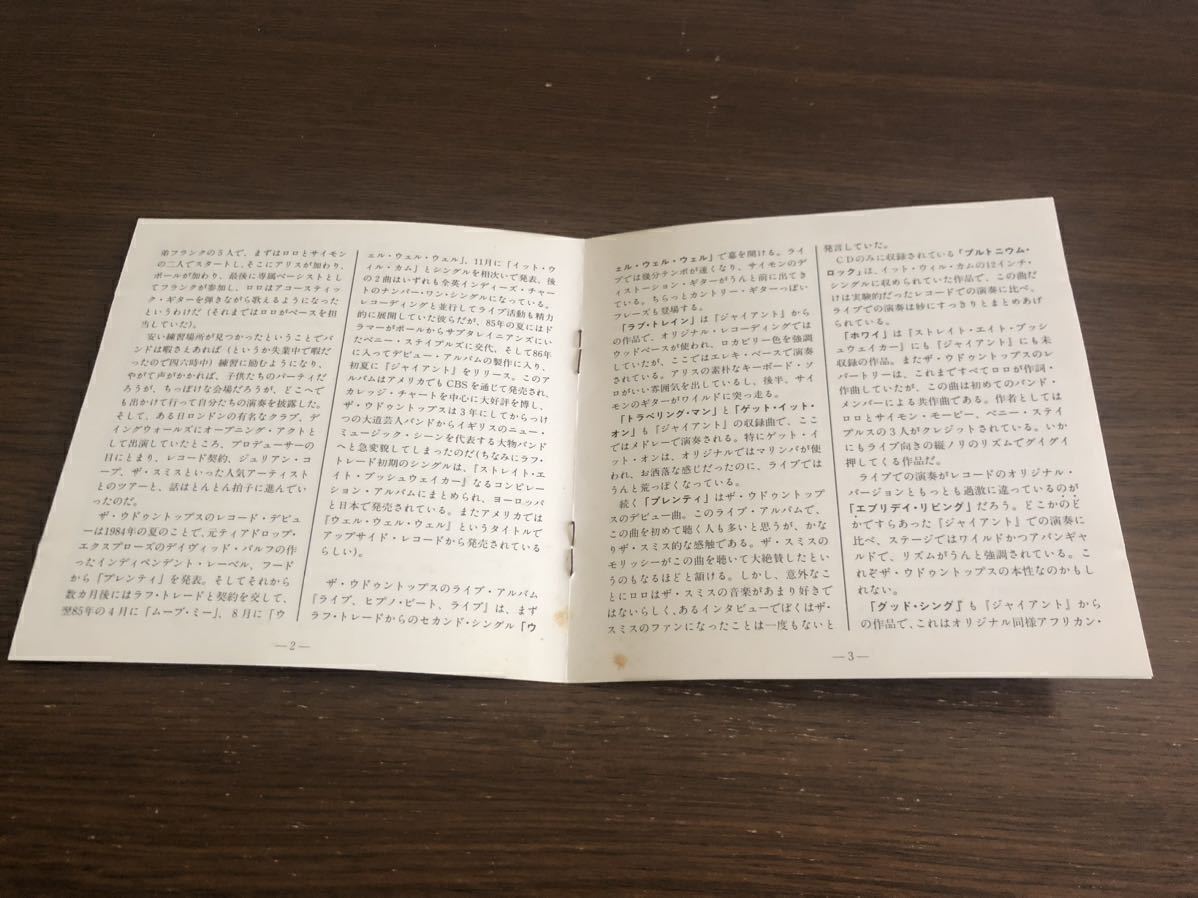 弟フランクの5人で、まずはロロとサイモン
の二人でスタートし、そこにアリスが加わり、
ポールが加わり、最後に専属ベーシストとし
てフランクが参加し、ロロはアコースティッ
ク・ギターを弾きながら歌えるようになった
というわけだ(それまではロロがベースを担
当していた)。
安い練習場所が見つかったということでバ
ンドは暇さえあれば(というか失業中で暇だ
ったので四六時中)練習に励むようになり、
やがて声がかかれば、子供たちのパーティだ
ろうが、ちっぽけな会場だろうが、どこへで
も出かけて行って自分たちの演奏を披露した。
そして、ある日ロンドンの有名なクラブ、デ
ィングウォールズにオープニング・アクトと
して出演していたところ、プロデューサーの
目にとまり、レコード契約、ジュリアン・コ
ープ、ザ・スミスといった人気アーティスト
とのツアーと、話はとんとん拍子に進んでい
ったのだ。
ザ・ウドゥントップスのレコード・デビュ
ーは1984年の夏のことで、元ティアドロップ・
エクスプローズのデイヴィッド・バルフの作
ったインディペンデント・レーベル、フード
から「プレンティ」を発表。そしてそれから
数カ月後にはラフ・トレードと契約を交して、
翌85年の4月に「ムーブ・ミー」、8月に「ウ
ェル・ウェル・ウェル」、11月に「イット・ウ
ィル・カム」とシングルを相次いで発表、後
の2曲はいずれも全英インディーズ・チャー
トのナンバー・ワン・シングルになっている。
レコーディングと並行してライブ活動も精力
的に展開していた彼らだが、85年の夏にはド
ラマーがポールからサブタレイニアンズにい
たベニー・ステイプルズに交代、そして86年
に入ってデビュー・アルバムの製作に入り、
初夏に『ジャイアント』をリリース。このア
ルバムはアメリカでもCBSを通じて発売され、
カレッジ・チャートを中心に大好評を博し、
ザ・ウドゥントップスは3年にしてからっけ
つの大道芸人バンドからイギリスのニュー・
ミュージック・シーンを代表する大物バンド
へと急変貌してしまったのだ(ちなみにラフ・
トレード初期のシングルは、『ストレイト・エ
イト・ブッシュウェイカー』なるコンピレー
ション・アルバムにまとめられ、ヨーロッパ
と日本で発売されている。またアメリカでは
『ウェル・ウェル・ウェル』というタイトルで
アップサイド・レコードから発売されている
らしい)。
ザ・ウドゥントップスのライブ・アルバム
『ライブ、ヒプノ・ビート、ライブ』は、まず
ラフ・トレードからのセカンド・シングル「ウ
—2—
ェル・ウェル・ウェル」で幕を開ける。ライ
ブでは幾分テンポが速くなり、サイモンのデ
ィストーション・ギターがうんと前に出てき
ている。ちらっとカントリー・ギターっぽい
フレーズも登場する。
「ラブ・トレイン」は『ジャイアント』から
の作品で、オリジナル・レコーディングでは
ウッドベースが使われ、ロカビリー色を強調
していたが、ここではエレキ・ベースで演奏
される。アリスの素朴なキーボード・ソ
ロがいい雰囲気を出しているし、後半、サイ
モンのギターがワイルドに突っ走る。
「トラベリング・マン」と「ゲット・イット・
オン」も『ジャイアント』の収録曲で、ここ
ではメドレーで演奏される。特にゲット・イ
ット・オンは、オリジナルではマリンバが使
われ、お洒落な感じだったのに、ライブでは
うんと荒っぽくなっている。
続く「プレンティ」はザ・ウドゥントップ
スのデビュー曲。このライブ・アルバムで、
この曲を初めて聴く人も多いと思うが、かな
りザ・スミス的な感触である。ザ・スミスの
モリッシーがこの曲を聴いて大絶賛したとい
うのもなるほどと頷ける。しかし、意外なこ
とにロロはザ・スミスの音楽があまり好きで
はないらしく、あるインタビューでぼくはザ・
スミスのファンになったことは一度もないと
発言していた。
CDのみに収録されている「プルトニウム・
ロック」は、イット・ウィル・カムの12インチ・
シングルに収められていた作品で、この曲だ
けは実験的だったレコードでの演奏に比べ、
ライブでの演奏は妙にすっきりとまとめあげ
られている。
「ホワイ」は『ストレイト・エイト・ブッシ
ュウェイカー』にも『ジャイアント』にも未
収録の作品。またザ・ウドゥントップスのレ
パートリーは、これまですべてロロが作詞・
作曲していたが、この曲は初めてのバンド・
メンバーによる共作曲である。作者としては
ロロとサイモン・モービー、ベニー・ステイ
プルスの3人がクレジットされている。いか
にもライブ向きの縦ノリのリズムでグイグイ
押してくる作品だ。
ライブでの演奏がレコードのオリジナル・
バージョンともっとも過激に違っているのが
「エブリデイ・リビング」だろう。どこかのど
かですらあった『ジャイアント』での演奏に
比べ、ステージではワイルドかつアバンギャ
ルドで、リズムがうんと強調されている。こ
れぞザ・ウドゥントップスの本性なのかもし
れない。
「グッド・シング」も『ジャイアント』から
の作品で、これはオリジナル同様アフリカン・
—3—